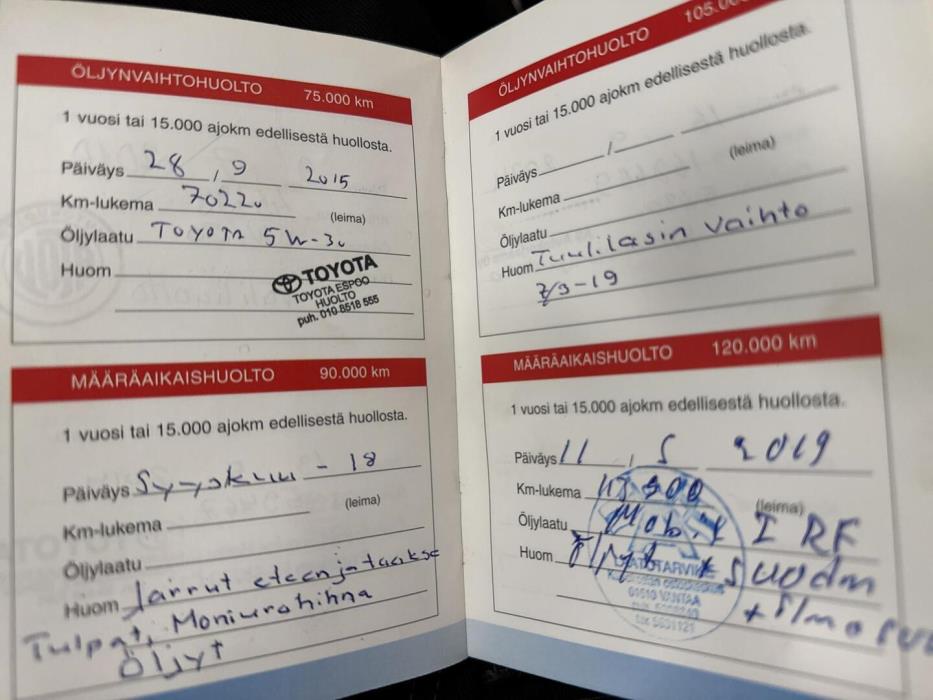 ÖLJYNVAIHTOHUOLTO 75.000 km
1 vuosi tai 15.000 ajokm edellisestä huollosta.
Päiväys 28 , 9 2015
Km-lukema 70220
(leima)
Öljylaatu TOYOTA 5W-30
Huom
TOYOTA
TOYOTA ESPOO
HUOLTO
puh. 010 8518 555
MÄÄRÄAIKAISHUOLTO 90.000 km
1 vuosi tai 15.000 ajokm edellisestä huollosta.
Päiväys Syyskuu - 18
(leima)
Km-lukema
Öljylaatu
Huom Jarrut eteen ja taakse
Tulpat, Moniurahihna
Öljyt
ÖLJYNVAIHTOHUOLTO 105.000
1 vuosi tai 15.000 ajokm edellisestä huollosta.
Päiväys ,
(leima)
Km-lukema
Öljylaatu
Huom Tuulilasin vaihto
7/3-19
MÄÄRÄAIKAISHUOLTO 120.000 km
1 vuosi tai 15.000 ajokm edellisestä huollosta.
Päiväys 11 , 5 2019
Km-lukema
(leima)
Öljylaatu Mobil 1 RF
Huom Öljyt + Suodm
+ ilmasuo
AUTOTARVIKE
01510 VANTAA